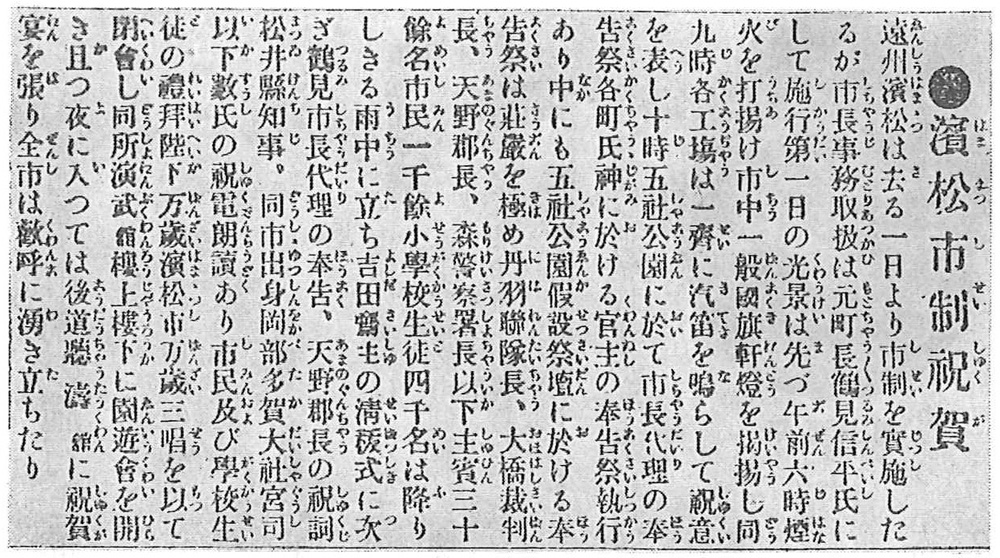 ●濱松市制祝賀
遠州濱松は去る一日より市制を實施した
るが市長事務取扱は元町長鶴見信平氏に
して施行第一日の光景は先づ午前六時煙
火を打揚け市中一般國旗軒燈を揭揚し同
九時各工塲は一齊に汽笛を鳴らして祝意
を表し十時五社公園に於て市長代理の奉
告祭各町氏神に於ける官主の奉告祭執行
あり中にも五社公園假設祭壇に於ける奉
告祭は莊嚴を極め丹羽聯隊長、大橋裁判
長、天野郡長、森警察署長以下主賓三十
餘名市民一千餘小學校生徒四千名は降り
しきる雨中に立ち吉田齋主の淸祓式に次
ぎ鶴見市長代理の奉告、天野郡長の祝詞
松井縣知事、同市出身岡部多賀大社宮司
以下數氏の祝電朗讀あり市民及び學校生
徒の禮拜陛下万歲濱松市万歲三唱を以て
閉會し同所演武館樓上樓下に園遊會を開
き且つ夜に入つては後道聽濤館に祝賀
宴を張り全市は歡呼に湧き立ちたり